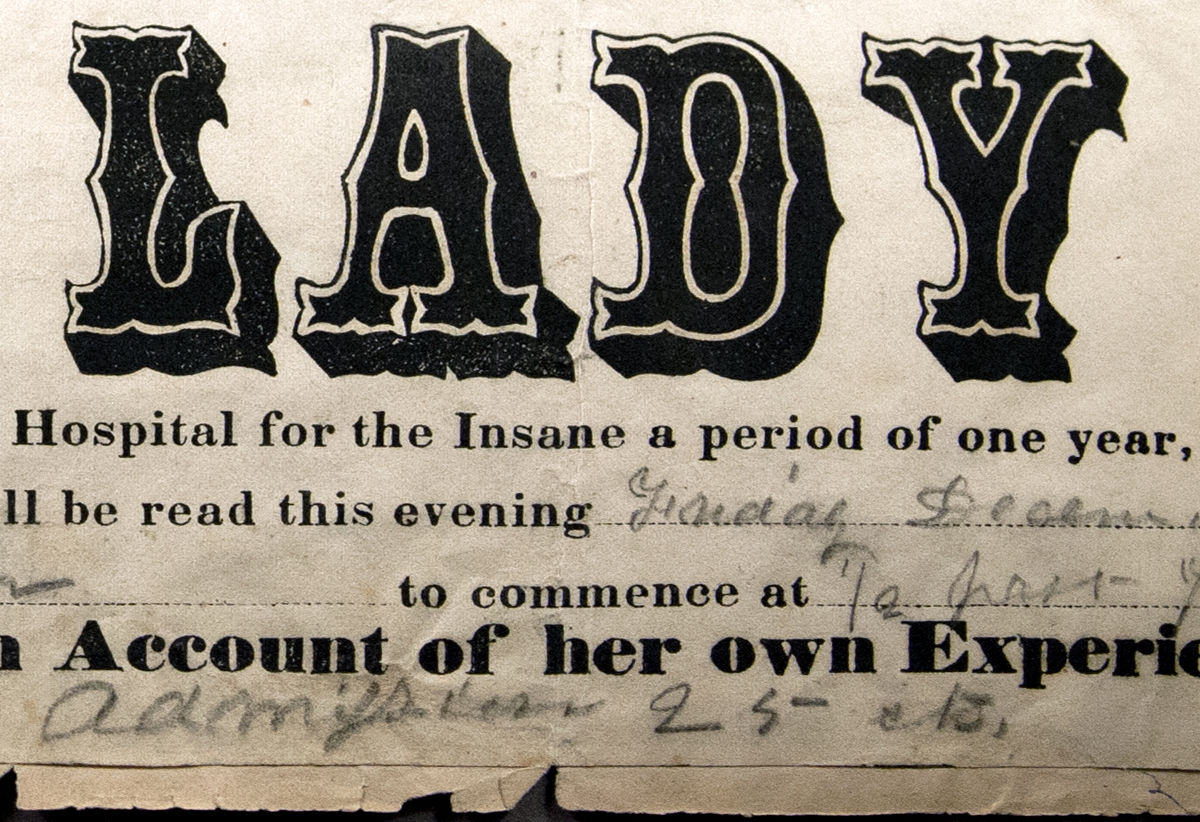 LADY
Hospital for the Insane a period of one year,
ll be read this evening Friday Decem
to commence at 1/2 past 7
n Account of her own Experie
Admission 25 cts.